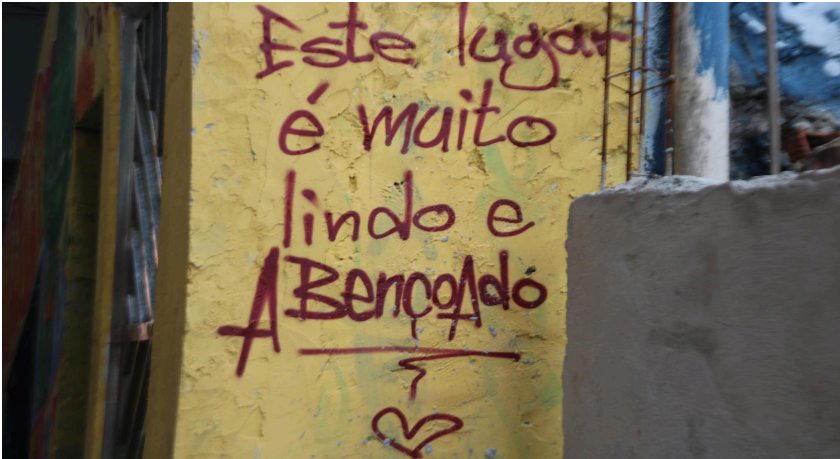 Este lugar
é muito
lindo e
ABençoAdo